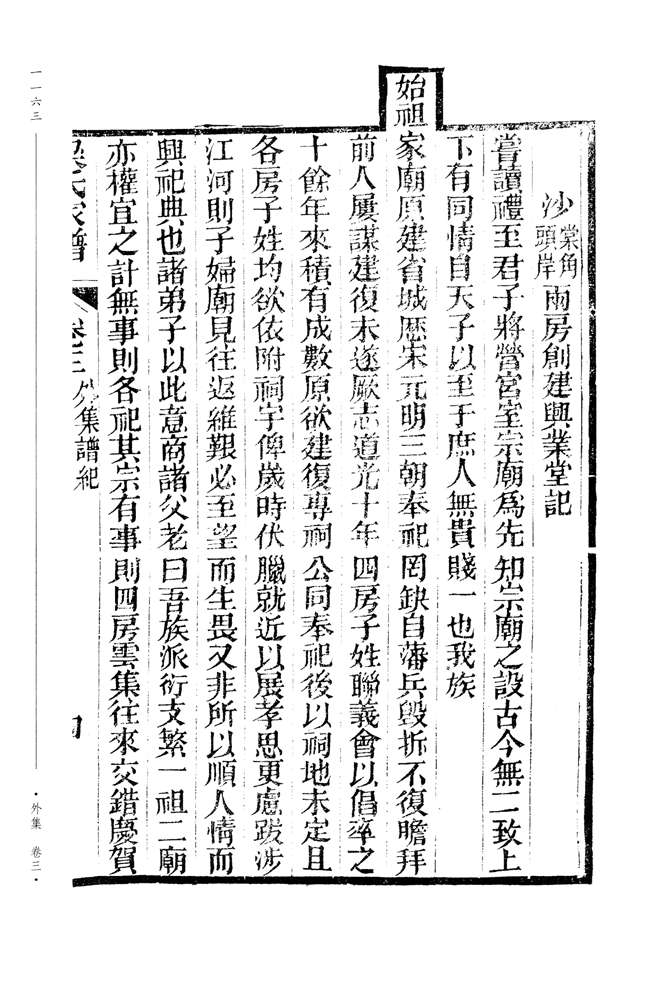 沙棠角頭岸兩房創建興業堂記
嘗讀禮至君子將營宮室宗廟爲先知宗廟之設古今無二致上
下有同情自天子以至于庶人無貴賤一也我族
始祖家廟原建省城歷宋元明三朝奉祀罔缺自藩兵毀折不復瞻拜
前人屢謀建復未遂厥志道光十年四房子姓聯義會以倡率之
十餘年來積有成數原欲建復專祠公同奉祀後以祠地未定且
各房子姓均欲依附祠宇俾歲時伏臘就近以展孝思更慮跋涉
江河則子婦廟見往返維艱必至望而生畏又非所以順人情而
興祀典也諸弟子以此意商諸父老曰吾族派衍支繁一祖二廟
亦權宜之計無事則各祀其宗有事則四房雲集往來交錯慶賀
氏家譜 卷三 外集譜紀
一一六三
·外集 卷三·